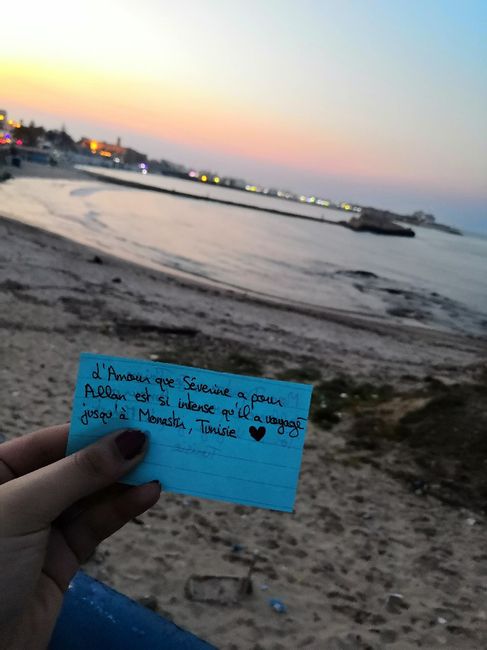 L'Amour que Séverine a pour
Allan est si intense qu'il a voyagé
jusqu'à Monastir, Tunisie ♥